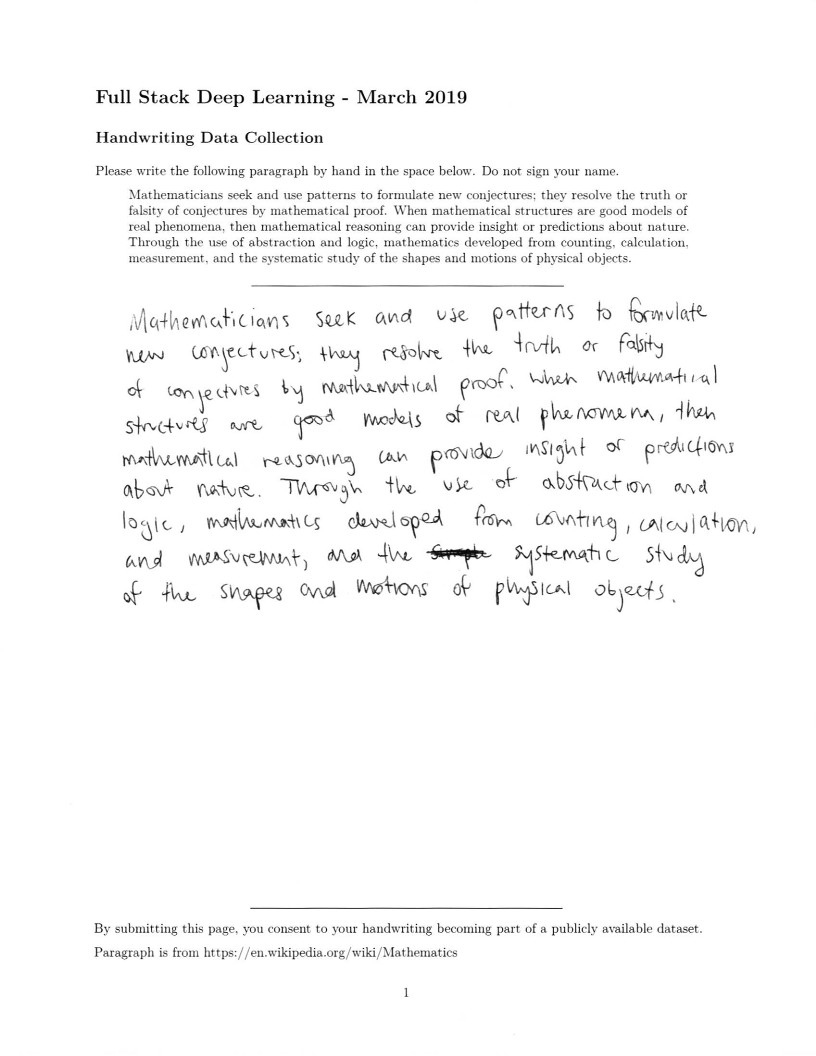 Full Stack Deep Learning - March 2019
Handwriting Data Collection
Please write the following paragraph by hand in the space below. Do not sign your name.
Mathematicians seek and use patterns to formulate new conjectures; they resolve the truth or
falsity of conjectures by mathematical proof. When mathematical structures are good models of
real phenomena, then mathematical reasoning can provide insight or predictions about nature.
Through the use of abstraction and logic, mathematics developed from counting, calculation,
measurement, and the systematic study of the shapes and motions of physical objects.
Mathematicians seek and use patterns to formulate
new conjectures; they resolve the truth or falsity
of conjectures by mathematical proof. When mathematical
structures are good models of real phenomena, then
mathematical reasoning can provide insight or predictions
about nature. Through the use of abstraction and
logic, mathematics developed from counting, calculation,
and measurement, and the systematic study
of the shapes and motions of physical objects.
By submitting this page, you consent to your handwriting becoming part of a publicly available dataset.
Paragraph is from https://en.wikipedia.org/wiki/Mathematics
1